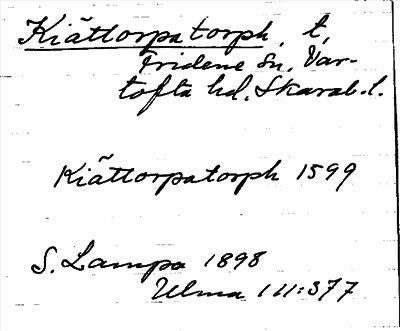 Kiättorpa torph, t,
Fridene sn, Var-
tofta hd, Skarab.l.
Kiättorpatorph 1599
S. Lampa 1898
Ulma 111:377